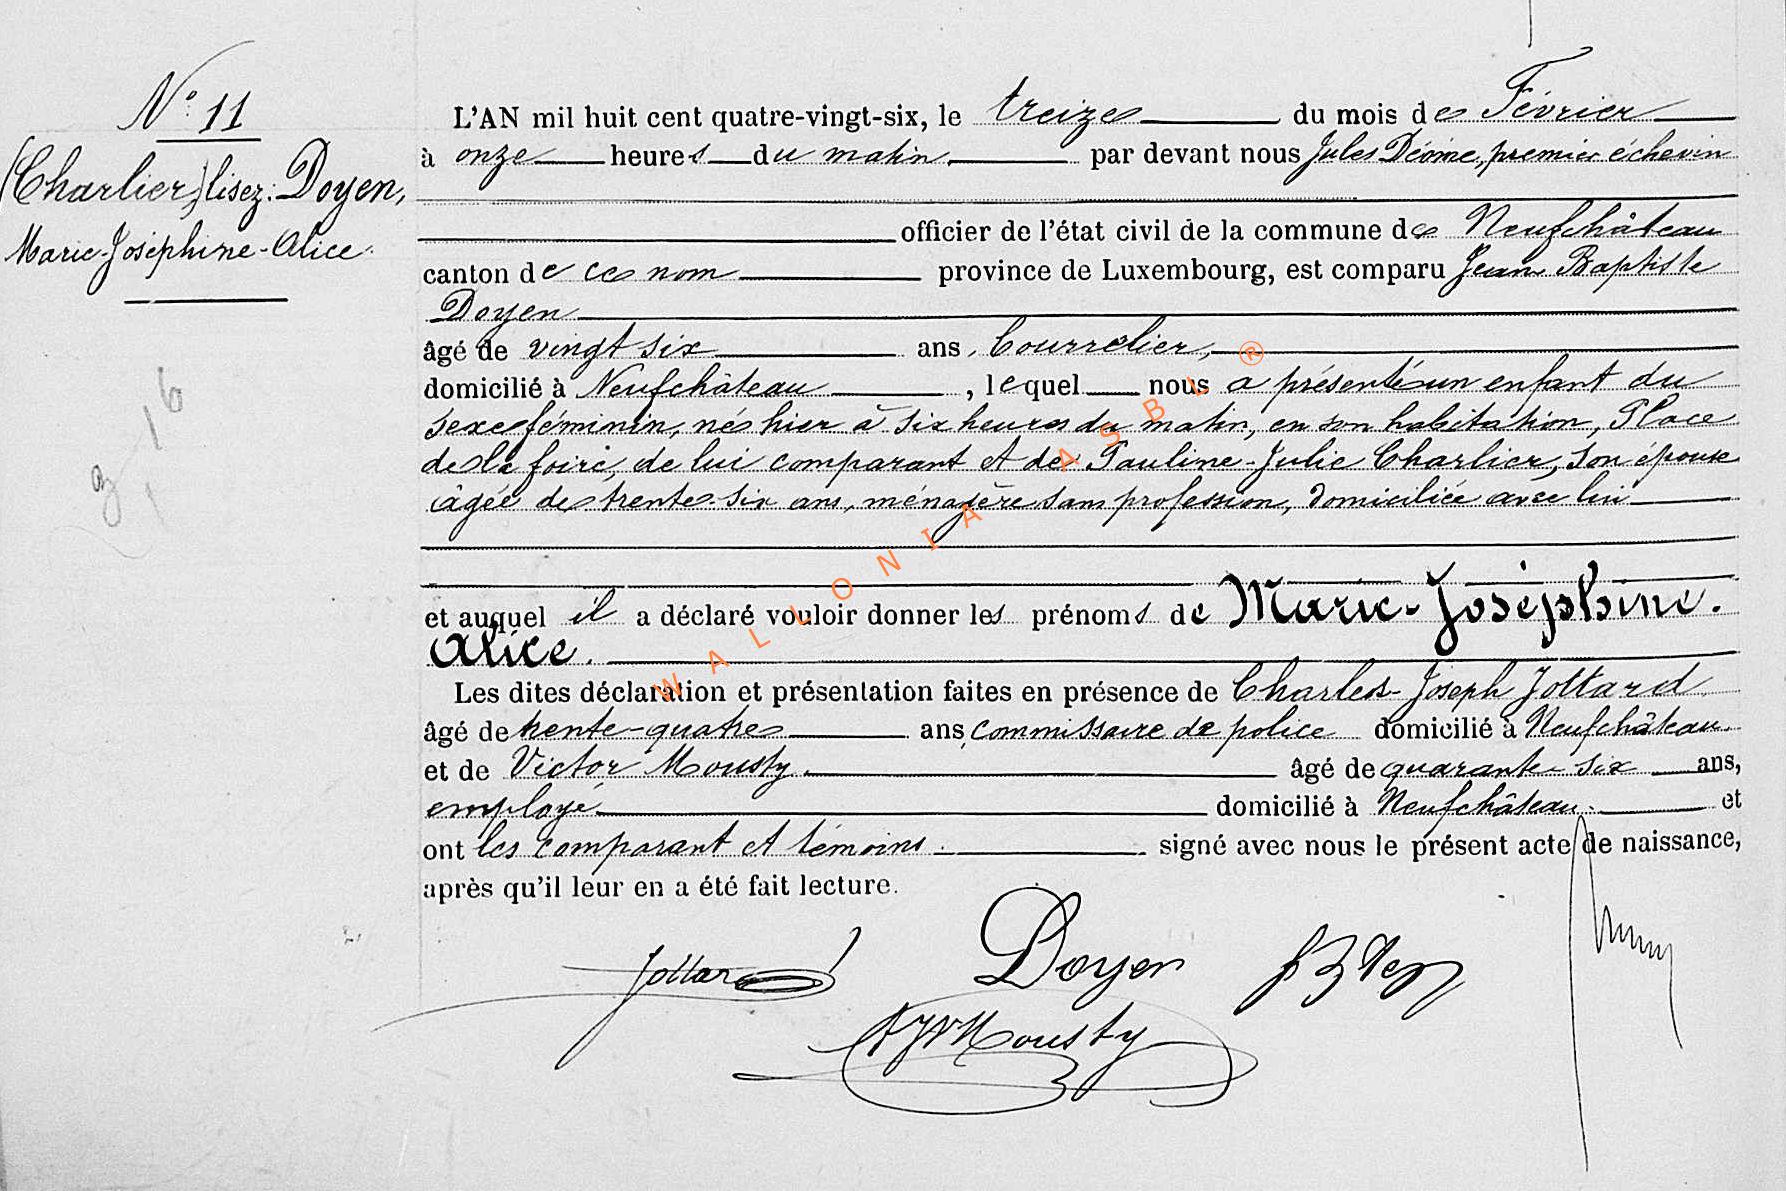 N° 11
(Charlier) lisez: Doyen,
Marie-Joséphine-Alice.
L'AN mil huit cent quatre-vingt-six, le treize du mois de Février
à onze heures du matin, par devant nous Jules Déome, premier échevin
officier de l'état civil de la commune de Neufchâteau
canton de ce nom province de Luxembourg, est comparu Jean Baptiste
Doyen
âgé de vingt six ans, Bourrelier,
domicilié à Neufchâteau, lequel nous a présenté un enfant du
sexe féminin, né hier à six heures du matin, en son habitation, Place
de la foire, de lui comparant et de Pauline-Julie Charlier, son épouse
âgée de trente-six ans, ménagère sans profession, domiciliée avec lui
et auquel il a déclaré vouloir donner les prénoms de Marie-Joséphine.
Alice.
Les dites déclaration et présentation faites en présence de Charles-Joseph Jottard
âgé de trente-quatre ans, commissaire de police domicilié à Neufchâteau.
et de Victor Mousty. âgé de quarante-six ans,
employé domicilié à Neufchâteau. et
ont les comparant et témoins. signé avec nous le présent acte de naissance,
après qu'il leur en a été fait lecture.
Jottard
Doyen
Mousty
WALLONIA ASBL ®